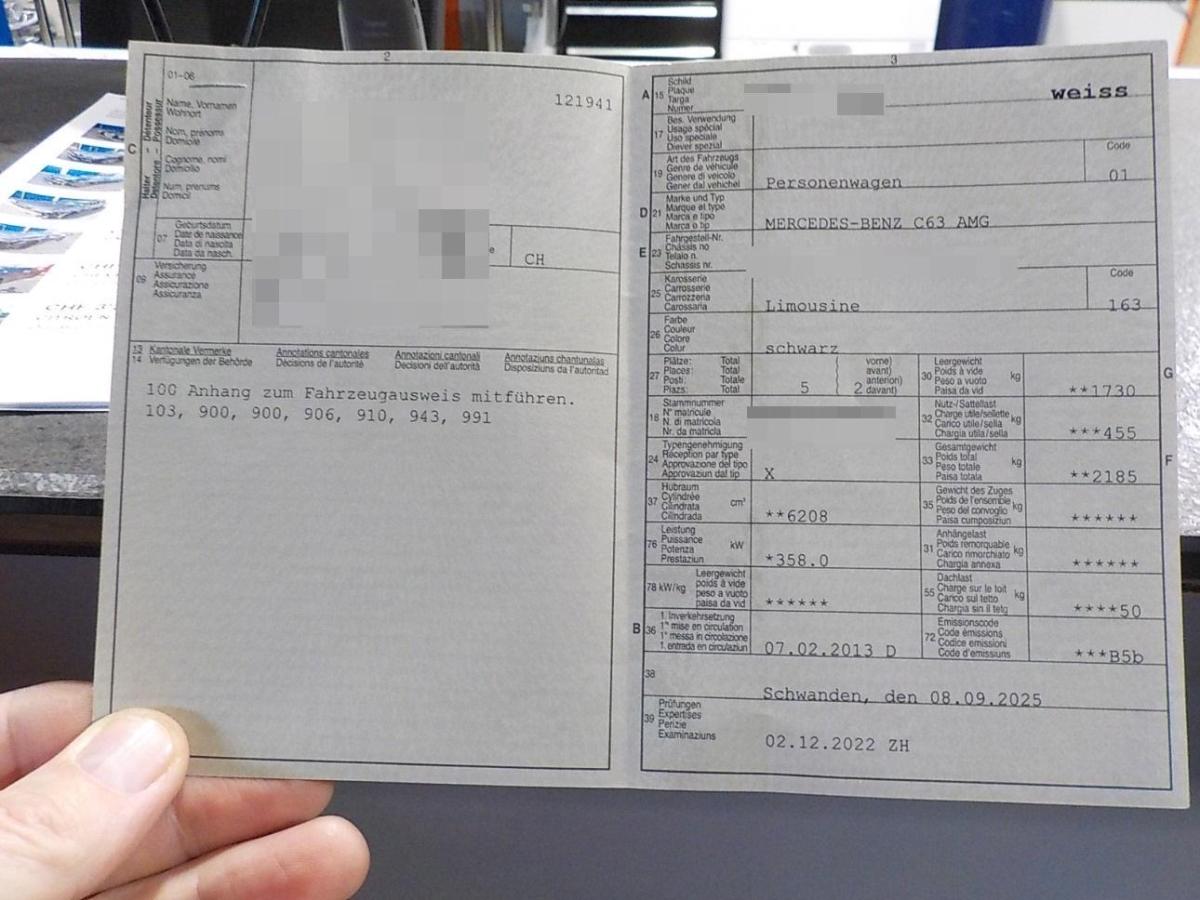 2
01-06
121941
C
Halter Détenteur
Detentore Possessur
Name, Vornamen
Wohnort
Nom, prénoms
Domicile
Cognome, nomi
Domicilio
Num, prenums
Domicil
07
Geburtsdatum
Date de naissance
Data di nascita
Data da nasch.
e
CH
09
Versicherung
Assurance
Assicurazione
Assicuranza
13
14
Kantonale Vermerke
Verfügungen der Behörde
Annotations cantonales
Décisions de l'autorité
Annotazioni cantonali
Decisioni dell'autorità
Annotaziuns chantunalas
Disposiziuns da l'autoritad
100 Anhang zum Fahrzeugausweis mitführen.
103, 900, 900, 906, 910, 943, 991
3
A 15
Schild
Plaque
Targa
Numer
weiss
17
Bes. Verwendung
Usage spécial
Uso speciale
Diever spezial
19
Art des Fahrzeugs
Genre de véhicule
Genere di veicolo
Gener dal vehichel
Personenwagen
Code
01
D 21
Marke und Typ
Marque et type
Marca e tipo
Marca e tip
MERCEDES-BENZ C63 AMG
E 23
Fahrgestell-Nr.
Châssis no
Telaio n.
Schassis nr.
25
Karosserie
Carrosserie
Carrozzeria
Carossaria
Limousine
Code
163
26
Farbe
Couleur
Colore
Colur
schwarz
27
Plätze: Total vorne)
Places: Total avant)
Posti: Totale anteriori)
Plazs: Total 5 2 davant)
30
Leergewicht
Poids à vide
Peso a vuoto
Paisa da vid
kg
**1730
G
18
Stammnummer
N° matricule
N. di matricola
Nr. da matricla
32
Nutz-/Sattellast
Charge utile/sellette
Carico utile/sella
Chargia utila/sella
kg
***455
24
Typengenehmigung
Réception par type
Approvazione del tipo
Approvaziun dal tip
X
33
Gesamtgewicht
Poids total
Peso totale
Paisa totala
kg
**2185
F
37
Hubraum
Cylindrée
Cilindrata
Cilindrada
cm³
**6208
35
Gewicht des Zuges
Poids de l'ensemble
Peso del convoglio
Paisa cumposiziun
kg
******
76
Leistung
Puissance
Potenza
Prestaziun
kW
*358.0
31
Anhängelast
Poids remorquable
Carico rimorchiato
Chargia annexa
kg
******
78 kW/kg
Leergewicht
poids à vide
peso a vuoto
paisa da vid
******
55
Dachlast
Charge sur le toit
Carico sul tetto
Chargia sin il tetg
kg
****50
B 36
1. Inverkehrsetzung
1re mise en circulation
1a messa in circolazione
1. entrada en circulaziun
07.02.2013 D
72
Emissionscode
Code émissions
Codice emissioni
Code d'emissiuns
***B5b
38
Schwanden, den 08.09.2025
39
Prüfungen
Expertises
Perizie
Examinaziuns
02.12.2022 ZH